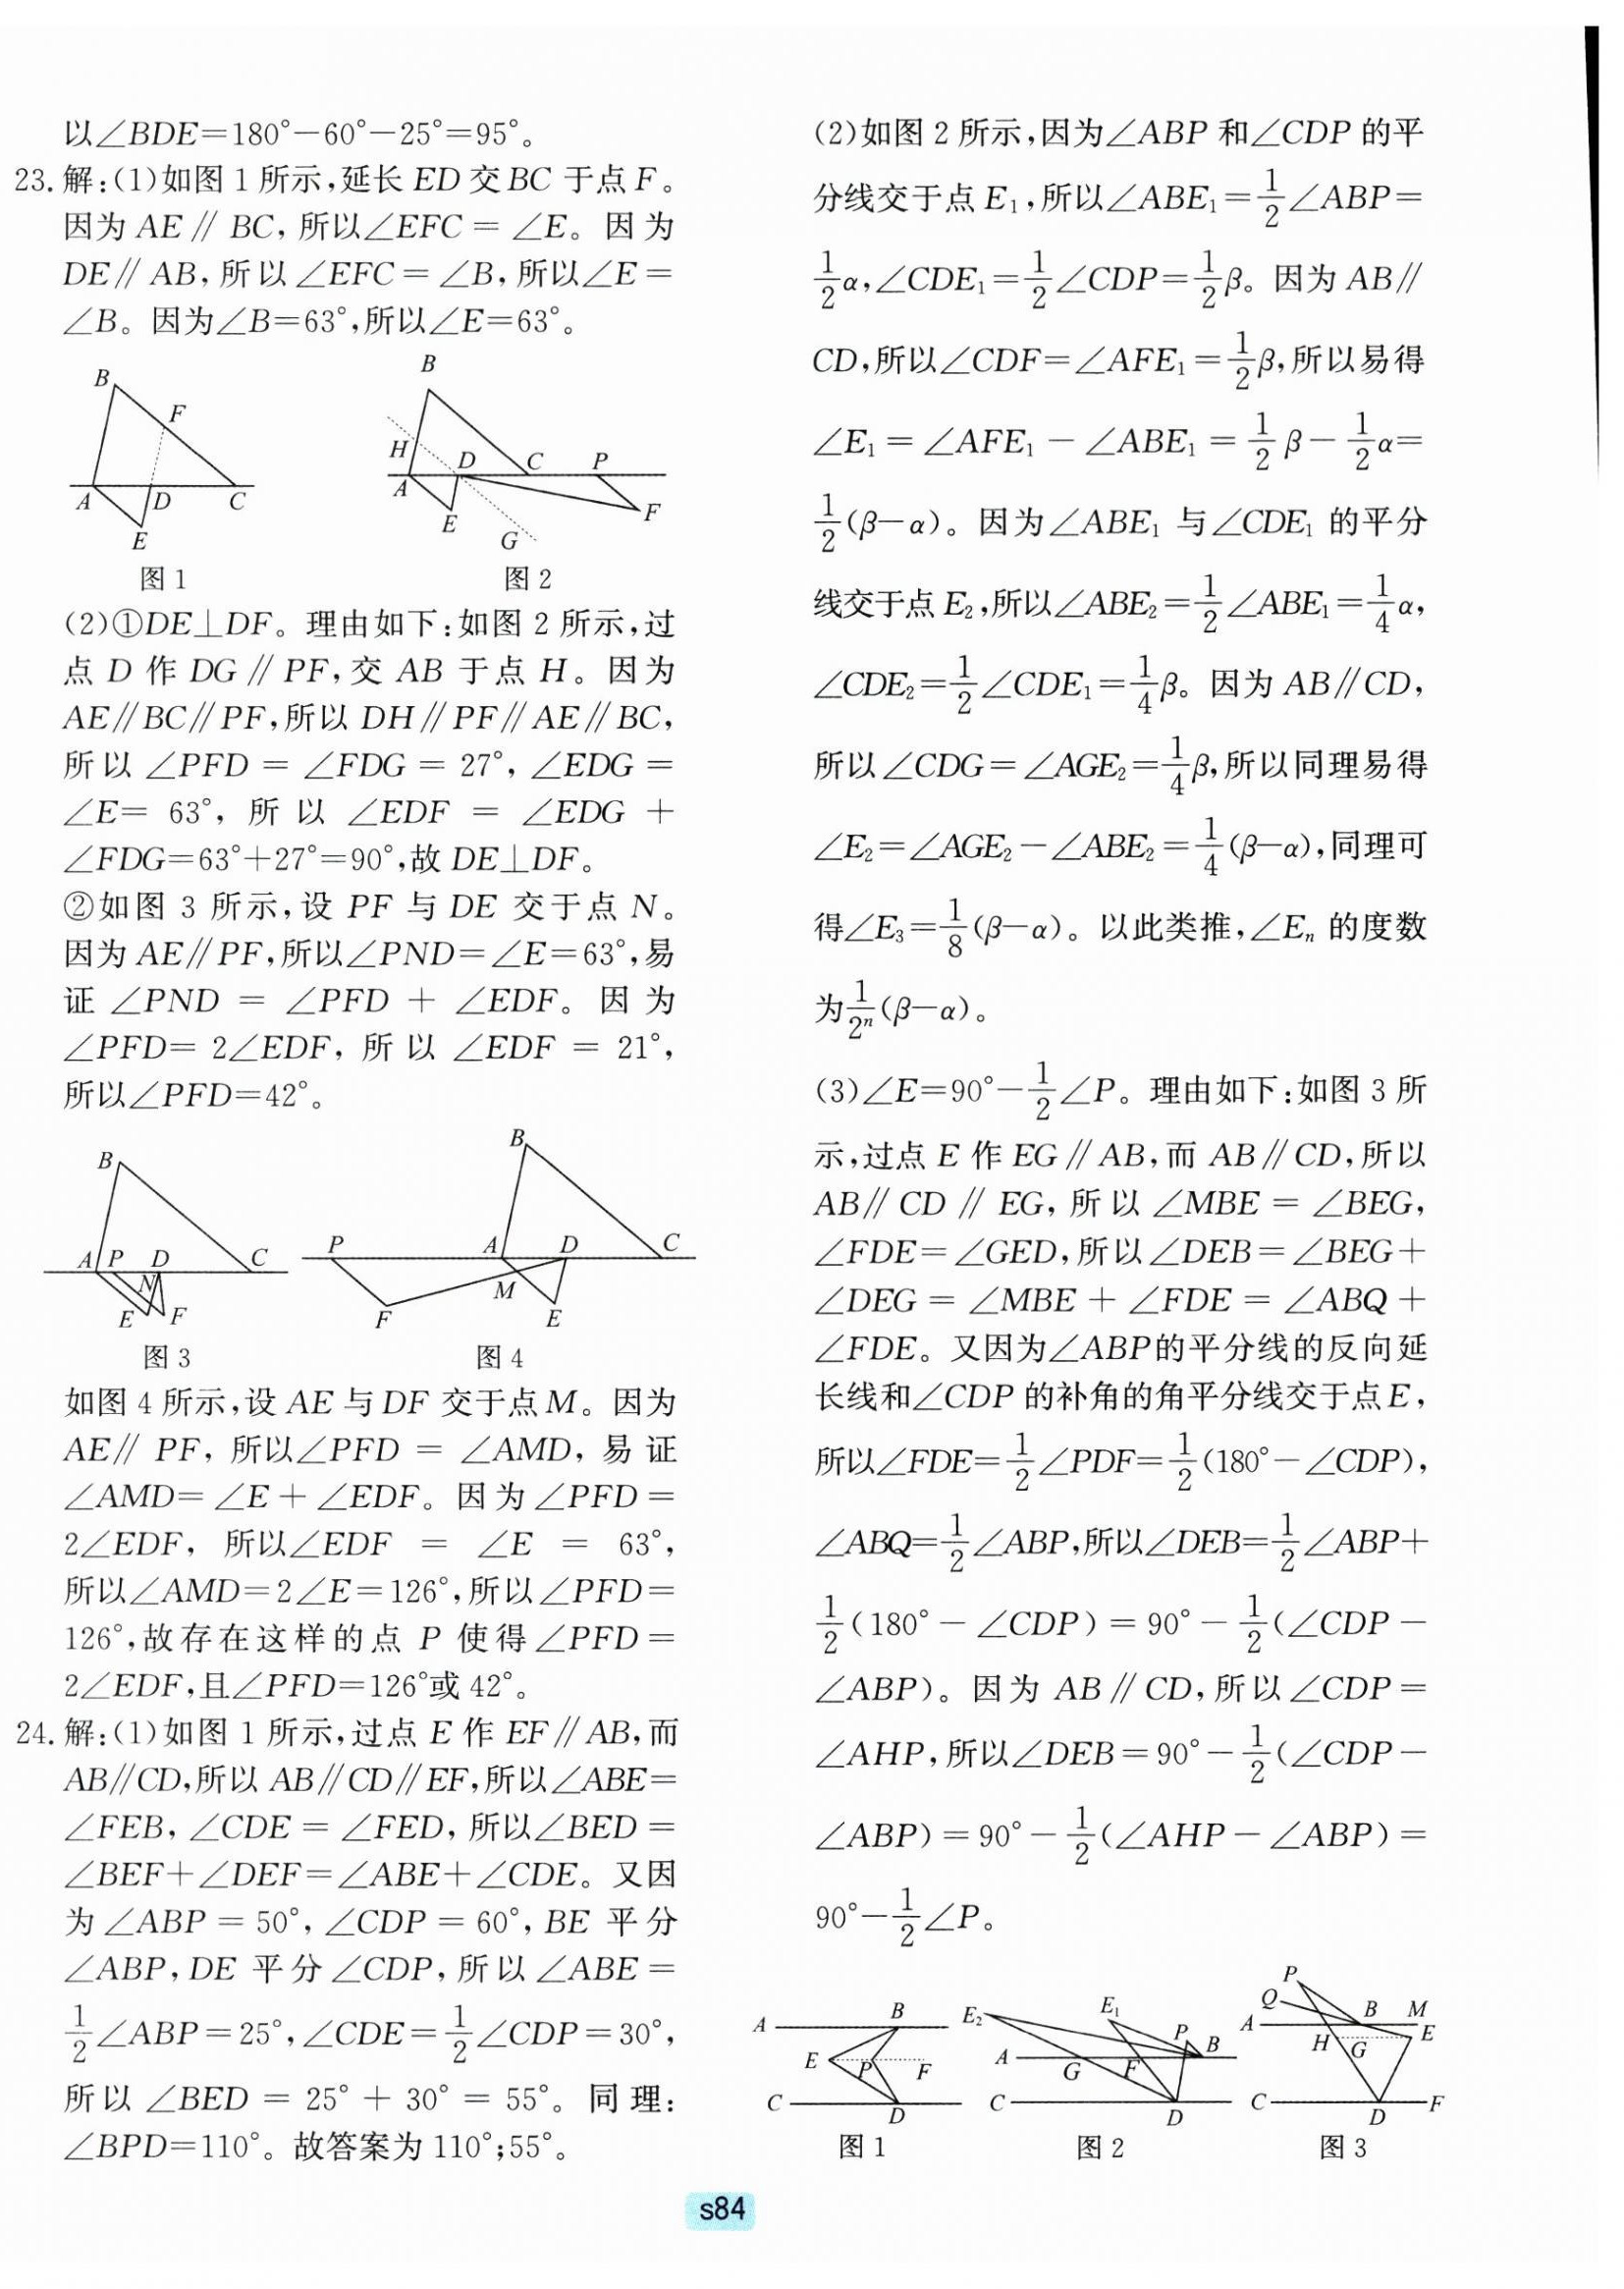 以∠BDE=180°-60°-25°=95°。
23.解:(1)如图1所示,延长ED交BC于点F。
因为AE∥BC,所以∠EFC=∠E。因为
DE∥AB,所以∠EFC=∠B,所以∠E=
∠B。因为∠B=63°,所以∠E=63°。
B
F
A
D
C
E
图1
B
H
D
C
P
A
E
F
G
图2
(2)①DE⊥DF。理由如下:如图2所示,过
点D作DG∥PF,交AB于点H。因为
AE∥BC∥PF,所以DH∥PF∥AE∥BC,
所以∠PFD=∠FDG=27°,∠EDG=
∠E=63°,所以∠EDF=∠EDG+
∠FDG=63°+27°=90°,故DE⊥DF。
②如图3所示,设PF与DE交于点N。
因为AE∥PF,所以∠PND=∠E=63°,易
证∠PND=∠PFD+∠EDF。因为
∠PFD=2∠EDF,所以∠EDF=21°,
所以∠PFD=42°。
B
A
P
D
C
N
E
F
图3
B
P
A
D
C
M
F
E
图4
如图4所示,设AE与DF交于点M。因为
AE∥PF,所以∠PFD=∠AMD,易证
∠AMD=∠E+∠EDF。因为∠PFD=
2∠EDF,所以∠EDF=∠E=63°,
所以∠AMD=2∠E=126°,所以∠PFD=
126°,故存在这样的点P使得∠PFD=
2∠EDF,且∠PFD=126°或42°。
24.解:(1)如图1所示,过点E作EF∥AB,而
AB∥CD,所以AB∥CD∥EF,所以∠ABE=
∠FEB,∠CDE=∠FED,所以∠BED=
∠BEF+∠DEF=∠ABE+∠CDE。又因
为∠ABP=50°,∠CDP=60°,BE平分
∠ABP,DE平分∠CDP,所以∠ABE=
1/2∠ABP=25°,∠CDE=1/2∠CDP=30°,
所以∠BED=25°+30°=55°。同理:
∠BPD=110°。故答案为110°;55°。
(2)如图2所示,因为∠ABP和∠CDP的平
分线交于点E₁,所以∠ABE₁=1/2∠ABP=
1/2α,∠CDE₁=1/2∠CDP=1/2β。因为AB∥
CD,所以∠CDF=∠AFE₁=1/2β,所以易得
∠E₁=∠AFE₁-∠ABE₁=1/2β-1/2α=
1/2(β-α)。因为∠ABE₁与∠CDE₁的平分
线交于点E₂,所以∠ABE₂=1/2∠ABE₁=1/4α,
∠CDE₂=1/2∠CDE₁=1/4β。因为AB∥CD,
所以∠CDG=∠AGE₂=1/4β,所以同理易得
∠E₂=∠AGE₂-∠ABE₂=1/4(β-α),同理可
得∠E₃=1/8(β-α)。以此类推,∠Eₙ的度数
为1/2ⁿ(β-α)。
(3)∠E=90°-1/2∠P。理由如下:如图3所
示,过点E作EG∥AB,而AB∥CD,所以
AB∥CD∥EG,所以∠MBE=∠BEG,
∠FDE=∠GED,所以∠DEB=∠BEG+
∠DEG=∠MBE+∠FDE=∠ABQ+
∠FDE。又因为∠ABP的平分线的反向延
长线和∠CDP的补角的角平分线交于点E,
所以∠FDE=1/2∠PDF=1/2(180°-∠CDP),
∠ABQ=1/2∠ABP,所以∠DEB=1/2∠ABP+
1/2(180°-∠CDP)=90°-1/2(∠CDP-
∠ABP)。因为AB∥CD,所以∠CDP=
∠AHP,所以∠DEB=90°-1/2(∠CDP-
∠ABP)=90°-1/2(∠AHP-∠ABP)=
90°-1/2∠P。
A
B
E
P
F
C
D
图1
E₂
E₁
P
B
A
G
F
C
D
图2
P
Q
B
M
A
H
G
E
C
D
F
图3
s84